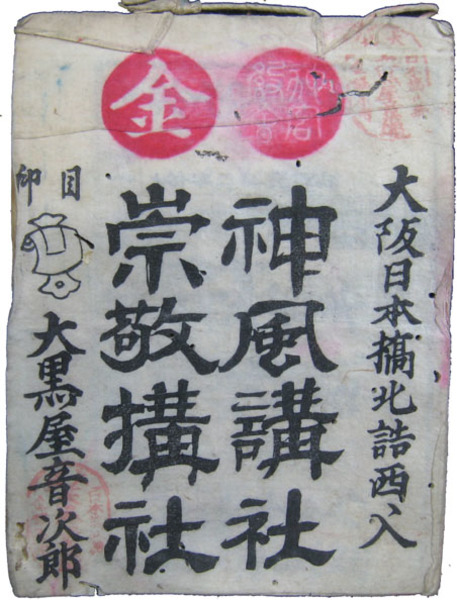 大阪日本橋北詰西入
神風講社
金
崇敬搆社
目印
大黒屋音次郎